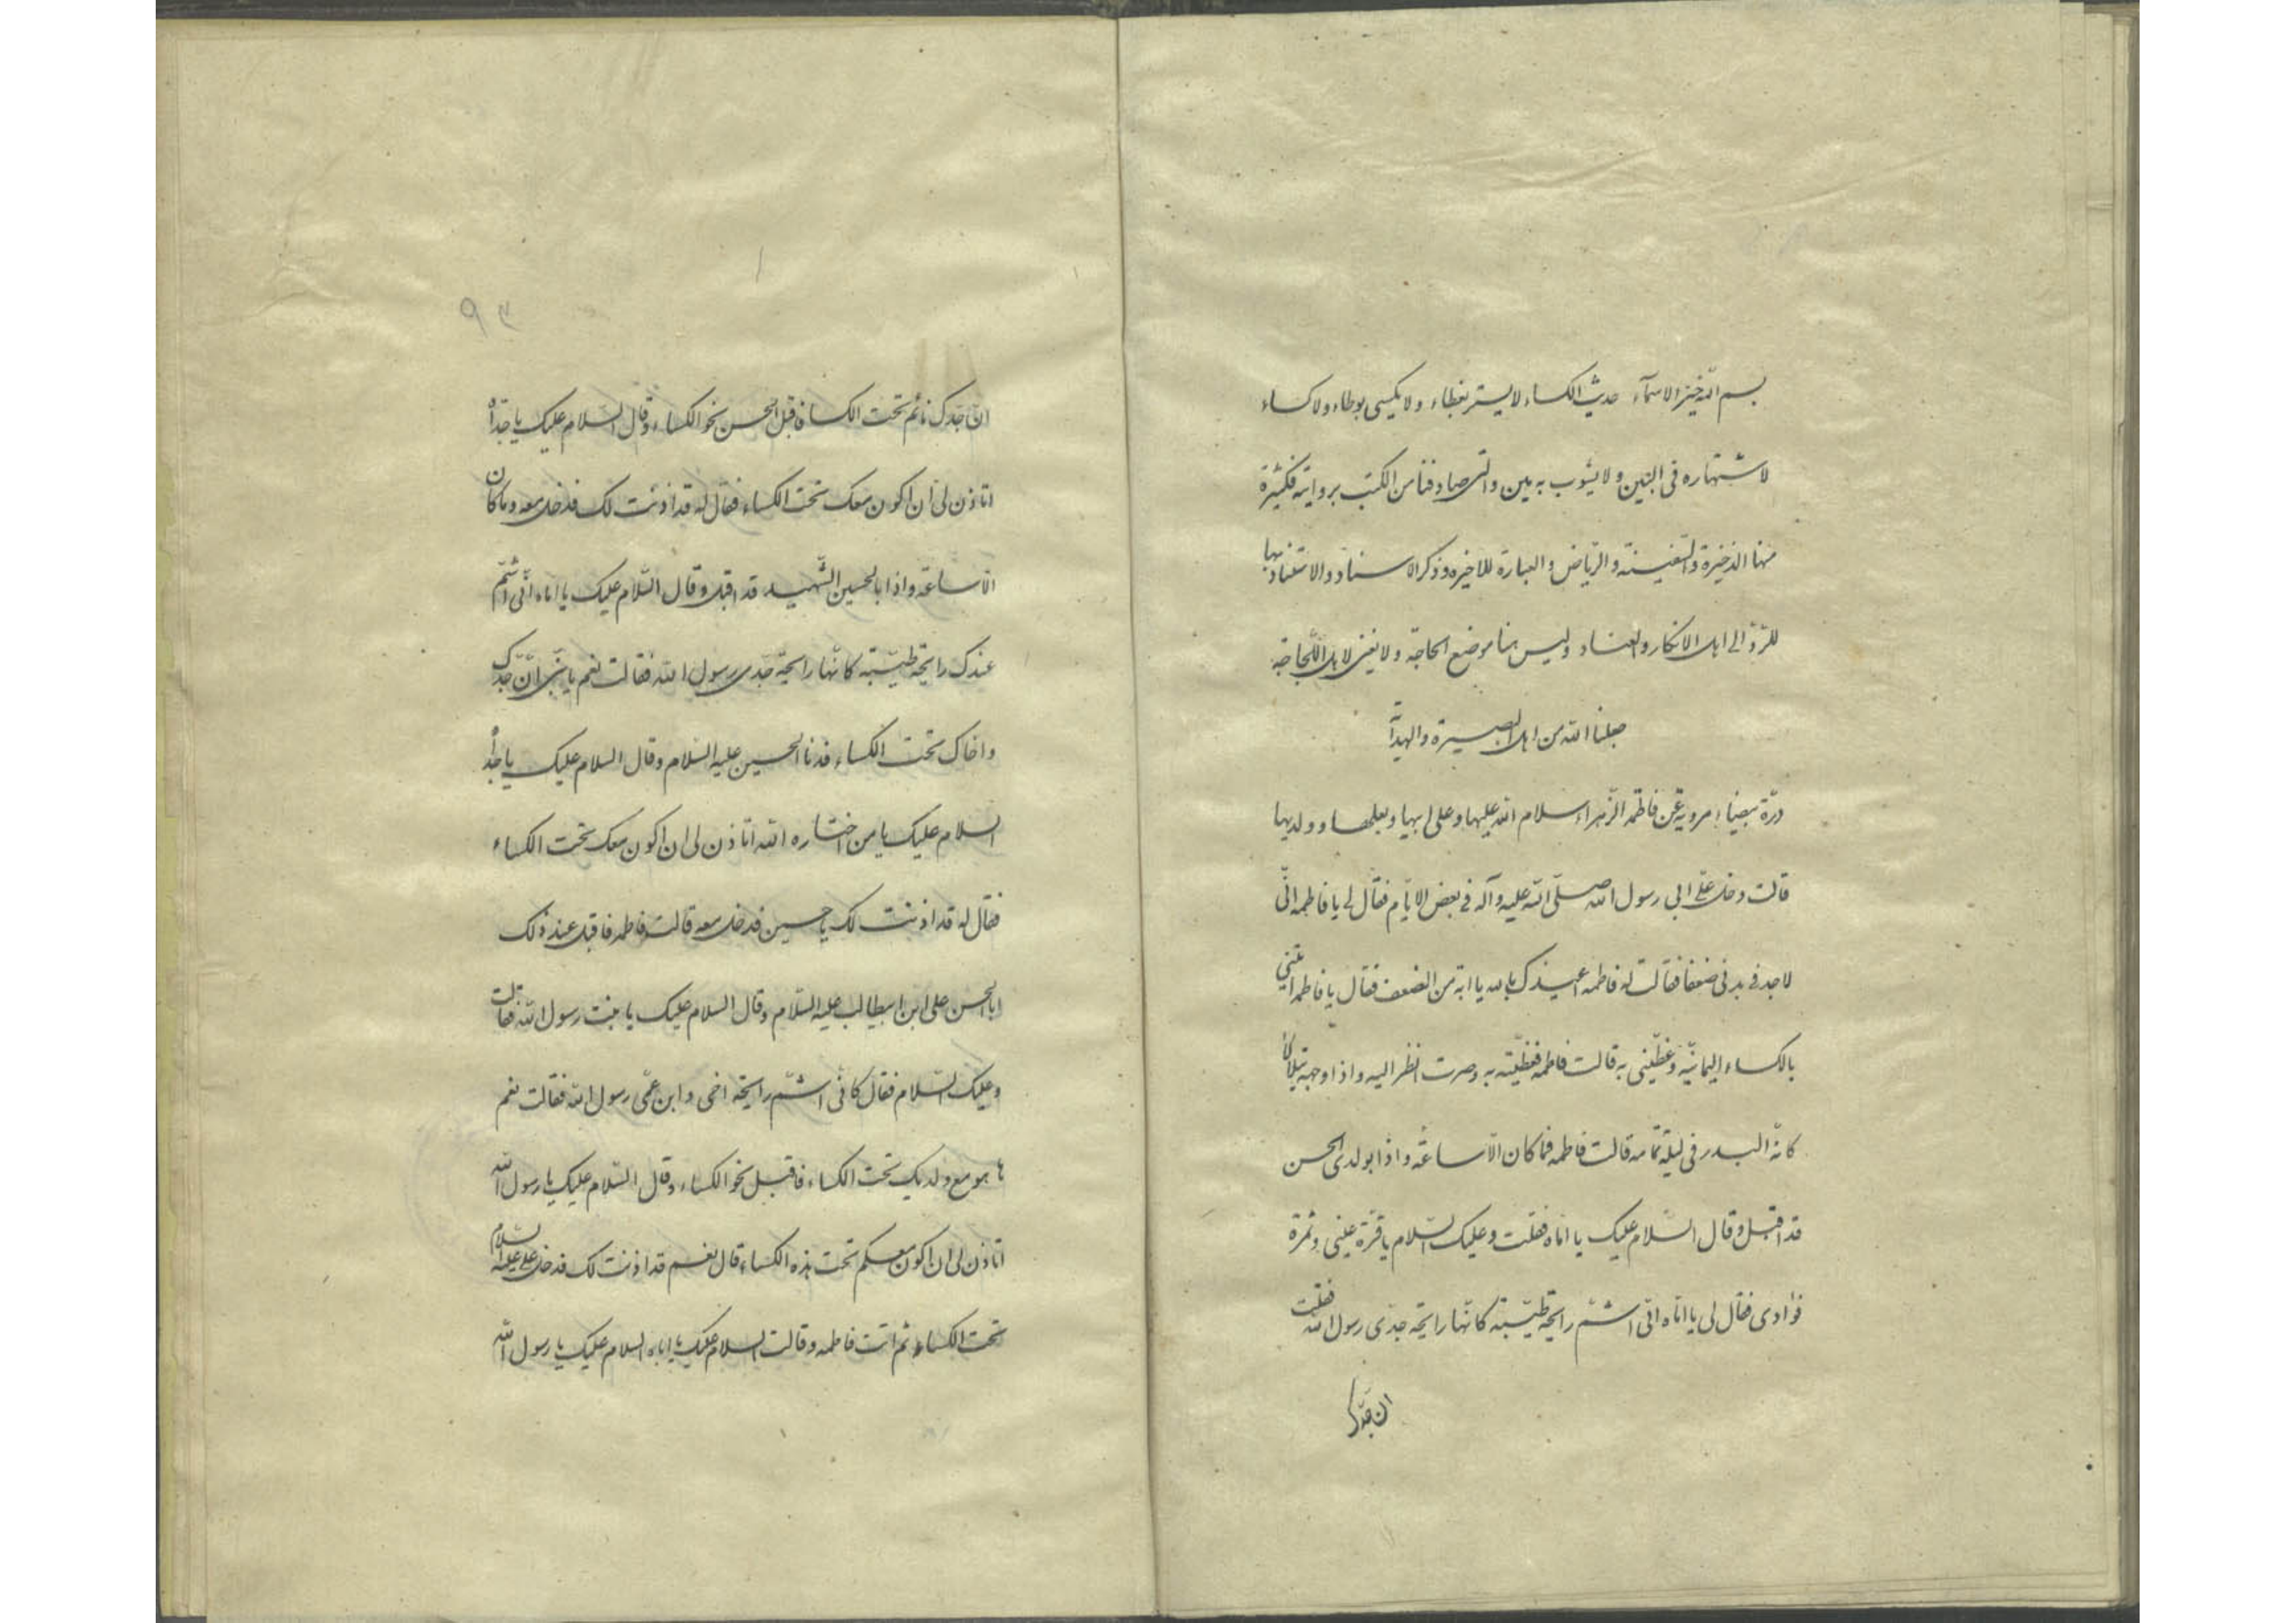 بسم الله خیر الاسمآء حدیث الکساء لا یستر بغطاء ولا یکسی بوطاء ولا کساء
لاشتهاره فی البین ولا یشوب به مین والتی صادفنا من الکتب بروایته فکثیرة
منها الذخیرة والسّفینة والرّیاض والعبارة للاخیره وذکر الاسناد والاستناد بها
للرّدّ الی اهل الانکار والعناد ولیس هنا موضع الحاجة ولا یغنی لاهل اللّجاجة
جعلنا الله من اهل البصیرة والهدآیة
درّة بیضاء مرویة عن فاطمة الزّهراء سلام الله علیها وعلی ابیها وبعلها وولدیها
قالت دخل علیّ ابی رسول الله صلّی الله علیه وآله فی بعض الایّام فقال لی یا فاطمه انّی
لاجد فی بدنی ضعفا فقالت له فاطمه اعیذک بالله یا ابة من الضعف فقال یا فاطمه ائتینی
بالکساء الیمانیّه وغطّینی به قالت فاطمه فغطّیته به وصرت انظر الیه واذا وجهه یتلألأ
کانّه البدر فی لیلة تمامه قالت فاطمه فما کان الّا ساعة واذا بولدی الحسن
قد اقبل وقال السّلام علیک یا امّاه فقلت وعلیک السّلام یا قرّة عینی وثمرة
فؤادی فقال لی یا امّاه انّی اشمّ رایحة طیّبة کانّها رایحة جدّی رسول الله فقلت
ان جدّک
۹۳
انّ جدّک نائم تحت الکساء فاقبل الحسن نحو الکساء وقال السّلام علیک یا جدّاه
اتاذن لی ان اکون معک تحت الکساء فقال له قد اذنت لک فدخل معه وما کان
الّا ساعة واذا بالحسین الشّهید قد اقبل وقال السّلام علیک یا امّاه انّی اشمّ
عندک رایحة طیّبة کانّها رایحة جدّی رسول الله فقالت نعم یا بنیّ انّ جدّک
واخاک تحت الکساء فدنا الحسین علیه السّلام وقال السلام علیک یا جدّاه
السلام علیک یا من اختاره الله اتاذن لی ان اکون معک تحت الکساء
فقال له قد اذنت لک یا حسین فدخل معه قالت فاطمه فاقبل عند ذلک
ابا الحسن علی ابن ابیطالب علیه السّلام وقال السلام علیک یا بنت رسول الله فقالت
وعلیک السّلام فقال کانّی اشمّ رایحة اخی وابن عمّی رسول الله فقالت نعم
ها هو مع ولدیک تحت الکساء فاقبل نحو الکساء وقال السّلام علیک یا رسول الله
اتاذن لی ان اکون معکم تحت هذه الکساء قال نعم قد اذنت لک فدخل علی علیه السّلام
تحت الکساء ثم اتت فاطمه وقالت السلام علیک یا اباه السلام علیک یا رسول الله